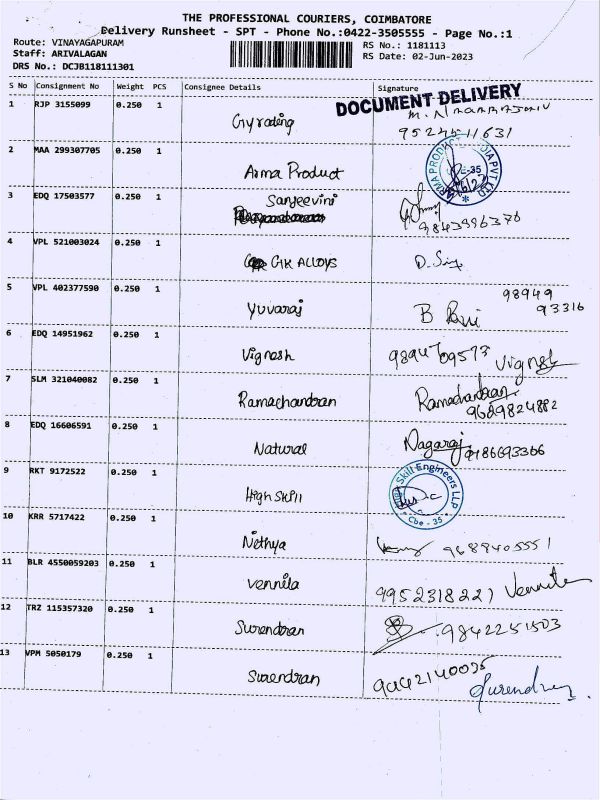 THE PROFESSIONAL COURIERS, COIMBATORE
Delivery Runsheet - SPT - Phone No.:0422-3505555 - Page No.:1
Route: VINAYAGAPURAM
Staff: ARIVALAGAN
DRS No.: DCJB118111301
RS No.: 1181113
RS Date: 02-Jun-2023
S No Consignment No Weight PCS Consignee Details Signature
DOCUMENT DELIVERY
1 RJP 3155099 0.250 1 Gyrading
2 MAA 299307705 0.250 1 Arma Product
3 EDQ 17503577 0.250 1 Sanjeevini
9843996376
4 VPL 521003024 0.250 1 GIK ALLOYS D. Siv
5 VPL 402377590 0.250 1 Yuvaraj B 98949
93316
6 EDQ 14951962 0.250 1 Vignesh 9894709573 Vignesh
7 SLM 321040082 0.250 1 Ramachandran Ramachandran
9629824882
8 EDQ 16606591 0.250 1 Natural Nagaraj
9 RKT 9172522 0.250 1 High Skill Skill Engineers LLP
Cbe - 35
10 KRR 5717422 0.250 1 Nithya 9688405551
11 BLR 4550059203 0.250 1 Vennila 9952318221 Vennila
12 TRZ 115357320 0.250 1 Surendran 9842251503
13 VPM 5050179 0.250 1 Surendran 9442140095
Surendran